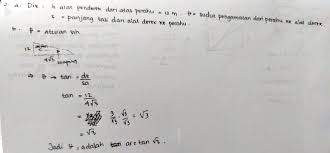 2. a. Dik : h alas penderek dari atas perahu = 12 m. θ = sudut pengamatan dari perahu ke alat derek
s = panjang tali dari alat derek ke perahu.
b. θ = aturan sin
4√3 samping
⇒ θ → tan = de/sa
tan = 12/4√3
= 3/√3 √3/√3 = √3
= √3
Jadi θ = adalah arc tan √3.